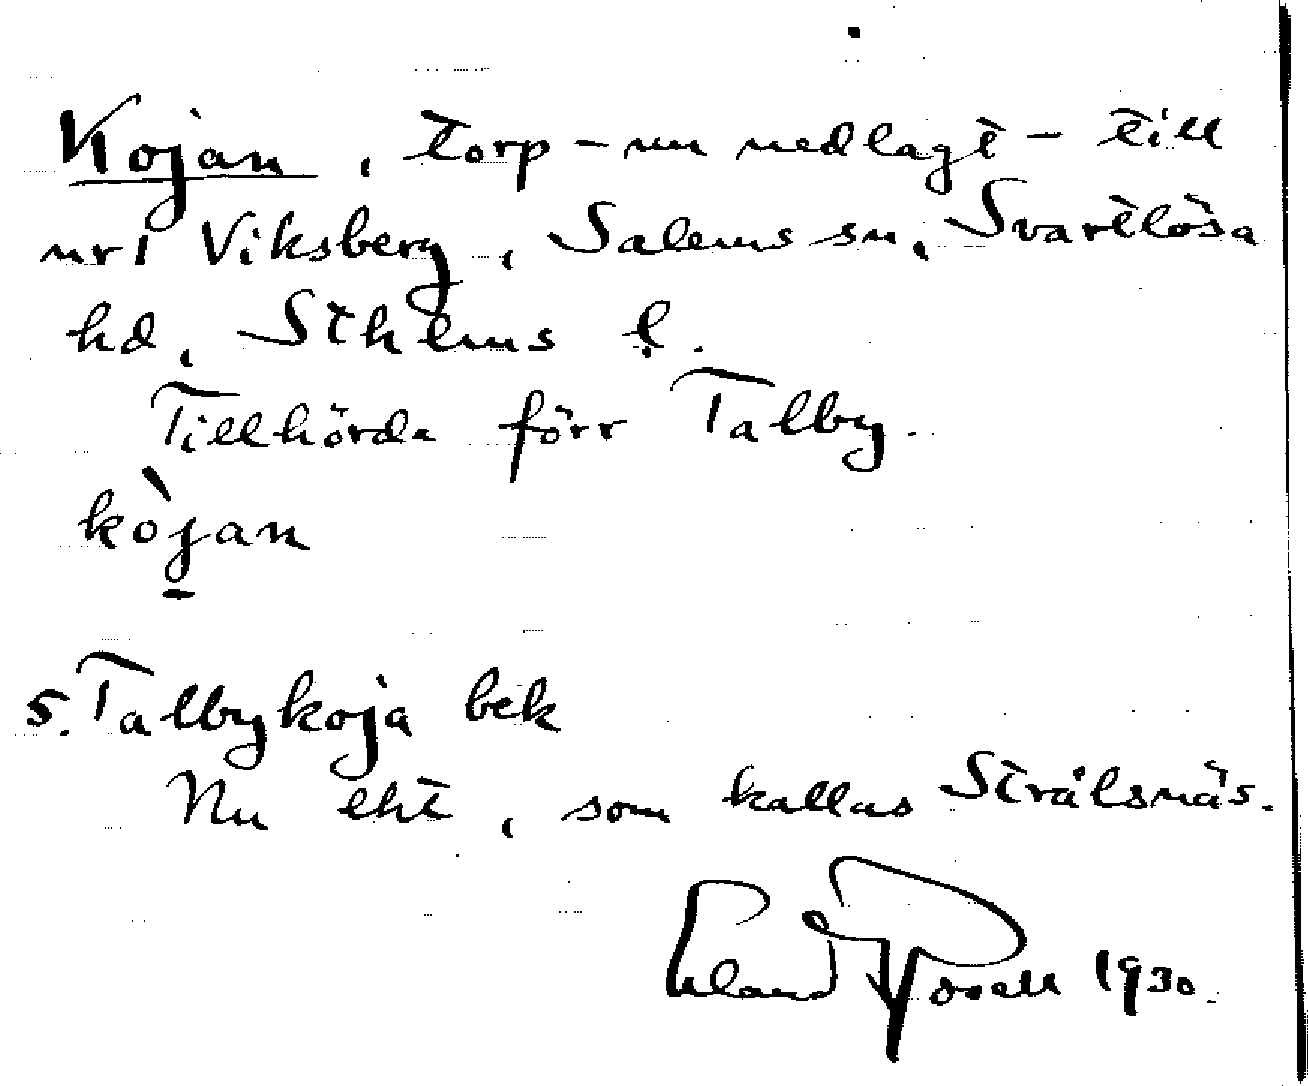 Kojan, torp - nu nedlagt - till
nr 1 Viksberg, Salems sn, Svartlösa
hd, Sthlms l.
Tillhörde förr Talby.
kòjan
5. Talbykoja bek
Nu lht, som kallas Strålsnäs.
Erland Rosell 1930.